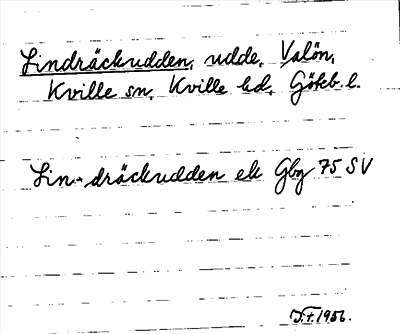 Lindräckudden, udde, Valön,
Kville sn, Kville hd, Göteb. l.
Lin-dräckudden ek Gbg 75 SV
J.t. 1956.